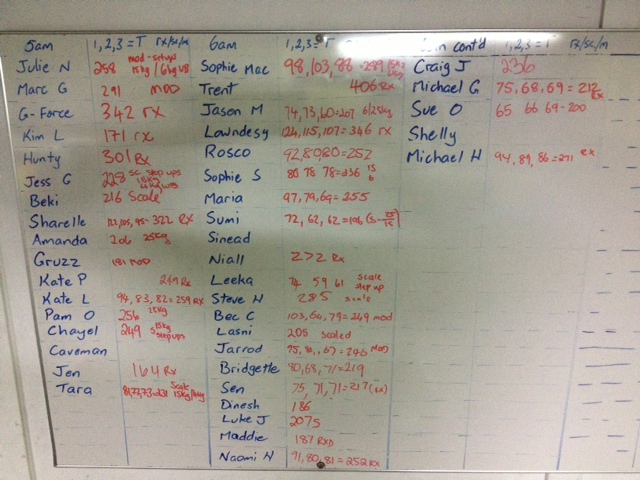 5am 1,2,3 = T rx/sc/m
Julie N 258 mod-setups 15kg/6kg WB
Marc G 291 MOD
G-Force 342 rx
Kim L 171 rx
Hunty 301 Rx
Jess G 228 sc step ups 15kg
Beki 216 Scale
Sharelle 95=322 Rx
Amanda 206 25kg
Gruzz 181 MOD
Kate P Rx
Kate L 94, 83, 82=259 RX
Pam O 256 25kg
Chayel 249 15kg step ups
Caveman
Jen 164 Rx
Tara 15kg
6am 1,2,3 = T rx/sc/m
Sophie Mac 98, 103, 88 - 289
Trent 406 Rx
Jason M 74, 73, 60=207
Lowndesy 124, 115, 107= 346 rx
Rosco 92,80,80=252
Sophie S 80 78 78=236 15 6
Maria 97,79,69=255
Sumi 72, 62, 62=196
Sinead
Niall 272 Rx
Leeka 74 59 61 scale step up
Steve H 285 scale
Bec C 103, 64, 79=249 mod
Lasni 205 scaled
Jarrod MOD
Bridgette 80,68,71=219
Sen 75, 71, 71=217(rx)
Dinesh 186
Luke J 207.5
Maddie 187 RXD
Naomi H 91, 80, 81 = 252 RX
cont'd 1,2,3 = T rx/sc/m
Craig J 236
Michael G 75, 68, 69 = 212 Rx
Sue O 65 66 69 - 200
Shelly
Michael H 94, 89, 86=271 RX